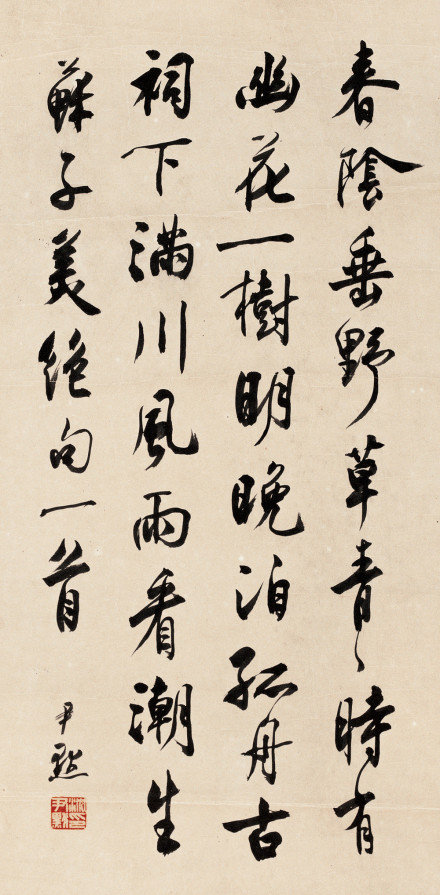 春陰垂野草青〻時有
幽花一樹明晚泊孤舟古
祠下滿川風雨看潮生
蘇子美絕句一首
尹默